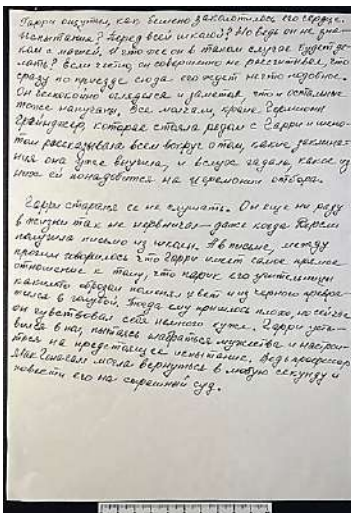 Гарри ощутил, как бешено заколотилось его сердце.
Испытание? Перед всей школой? Но ведь он не зна-
ком с магией. И что же он в таком случае будет де-
лать? Если честно, он совершенно не рассчитывал, что
сразу по приезде сюда его ждет нечто подобное.
Он беспокойно огляделся и заметил что и остальные
тоже напуганы. Все молчали, кроме Гермионы
Грэйнджер, которая стояла рядом с Гарри и шепо-
том рассказывала всем вокруг о том, какие заклина-
ния она уже выучила, и вслух гадала, какое из
них ей понадобится на церемонии отбора.
Гарри старался ее не слушать. Он еще ни разу
в жизни так не нервничал — даже когда Дурсли
получили письмо из школы. А в письме, между
прочим говорилось что Гарри имеет самое прямое
отношение к тому, что парик его учительницы
каким-то образом поменял цвет и из черного превра-
тился в голубой. Тогда ему пришлось плохо, но сейчас
он чувствовал себя намного хуже. Гарри уста-
вился в пол, пытаясь набраться мужества и настрои-
ться на предстоящее испытание. Ведь профессор
МакГонагалл могла вернуться в любую секунду и
повести его на страшный суд.